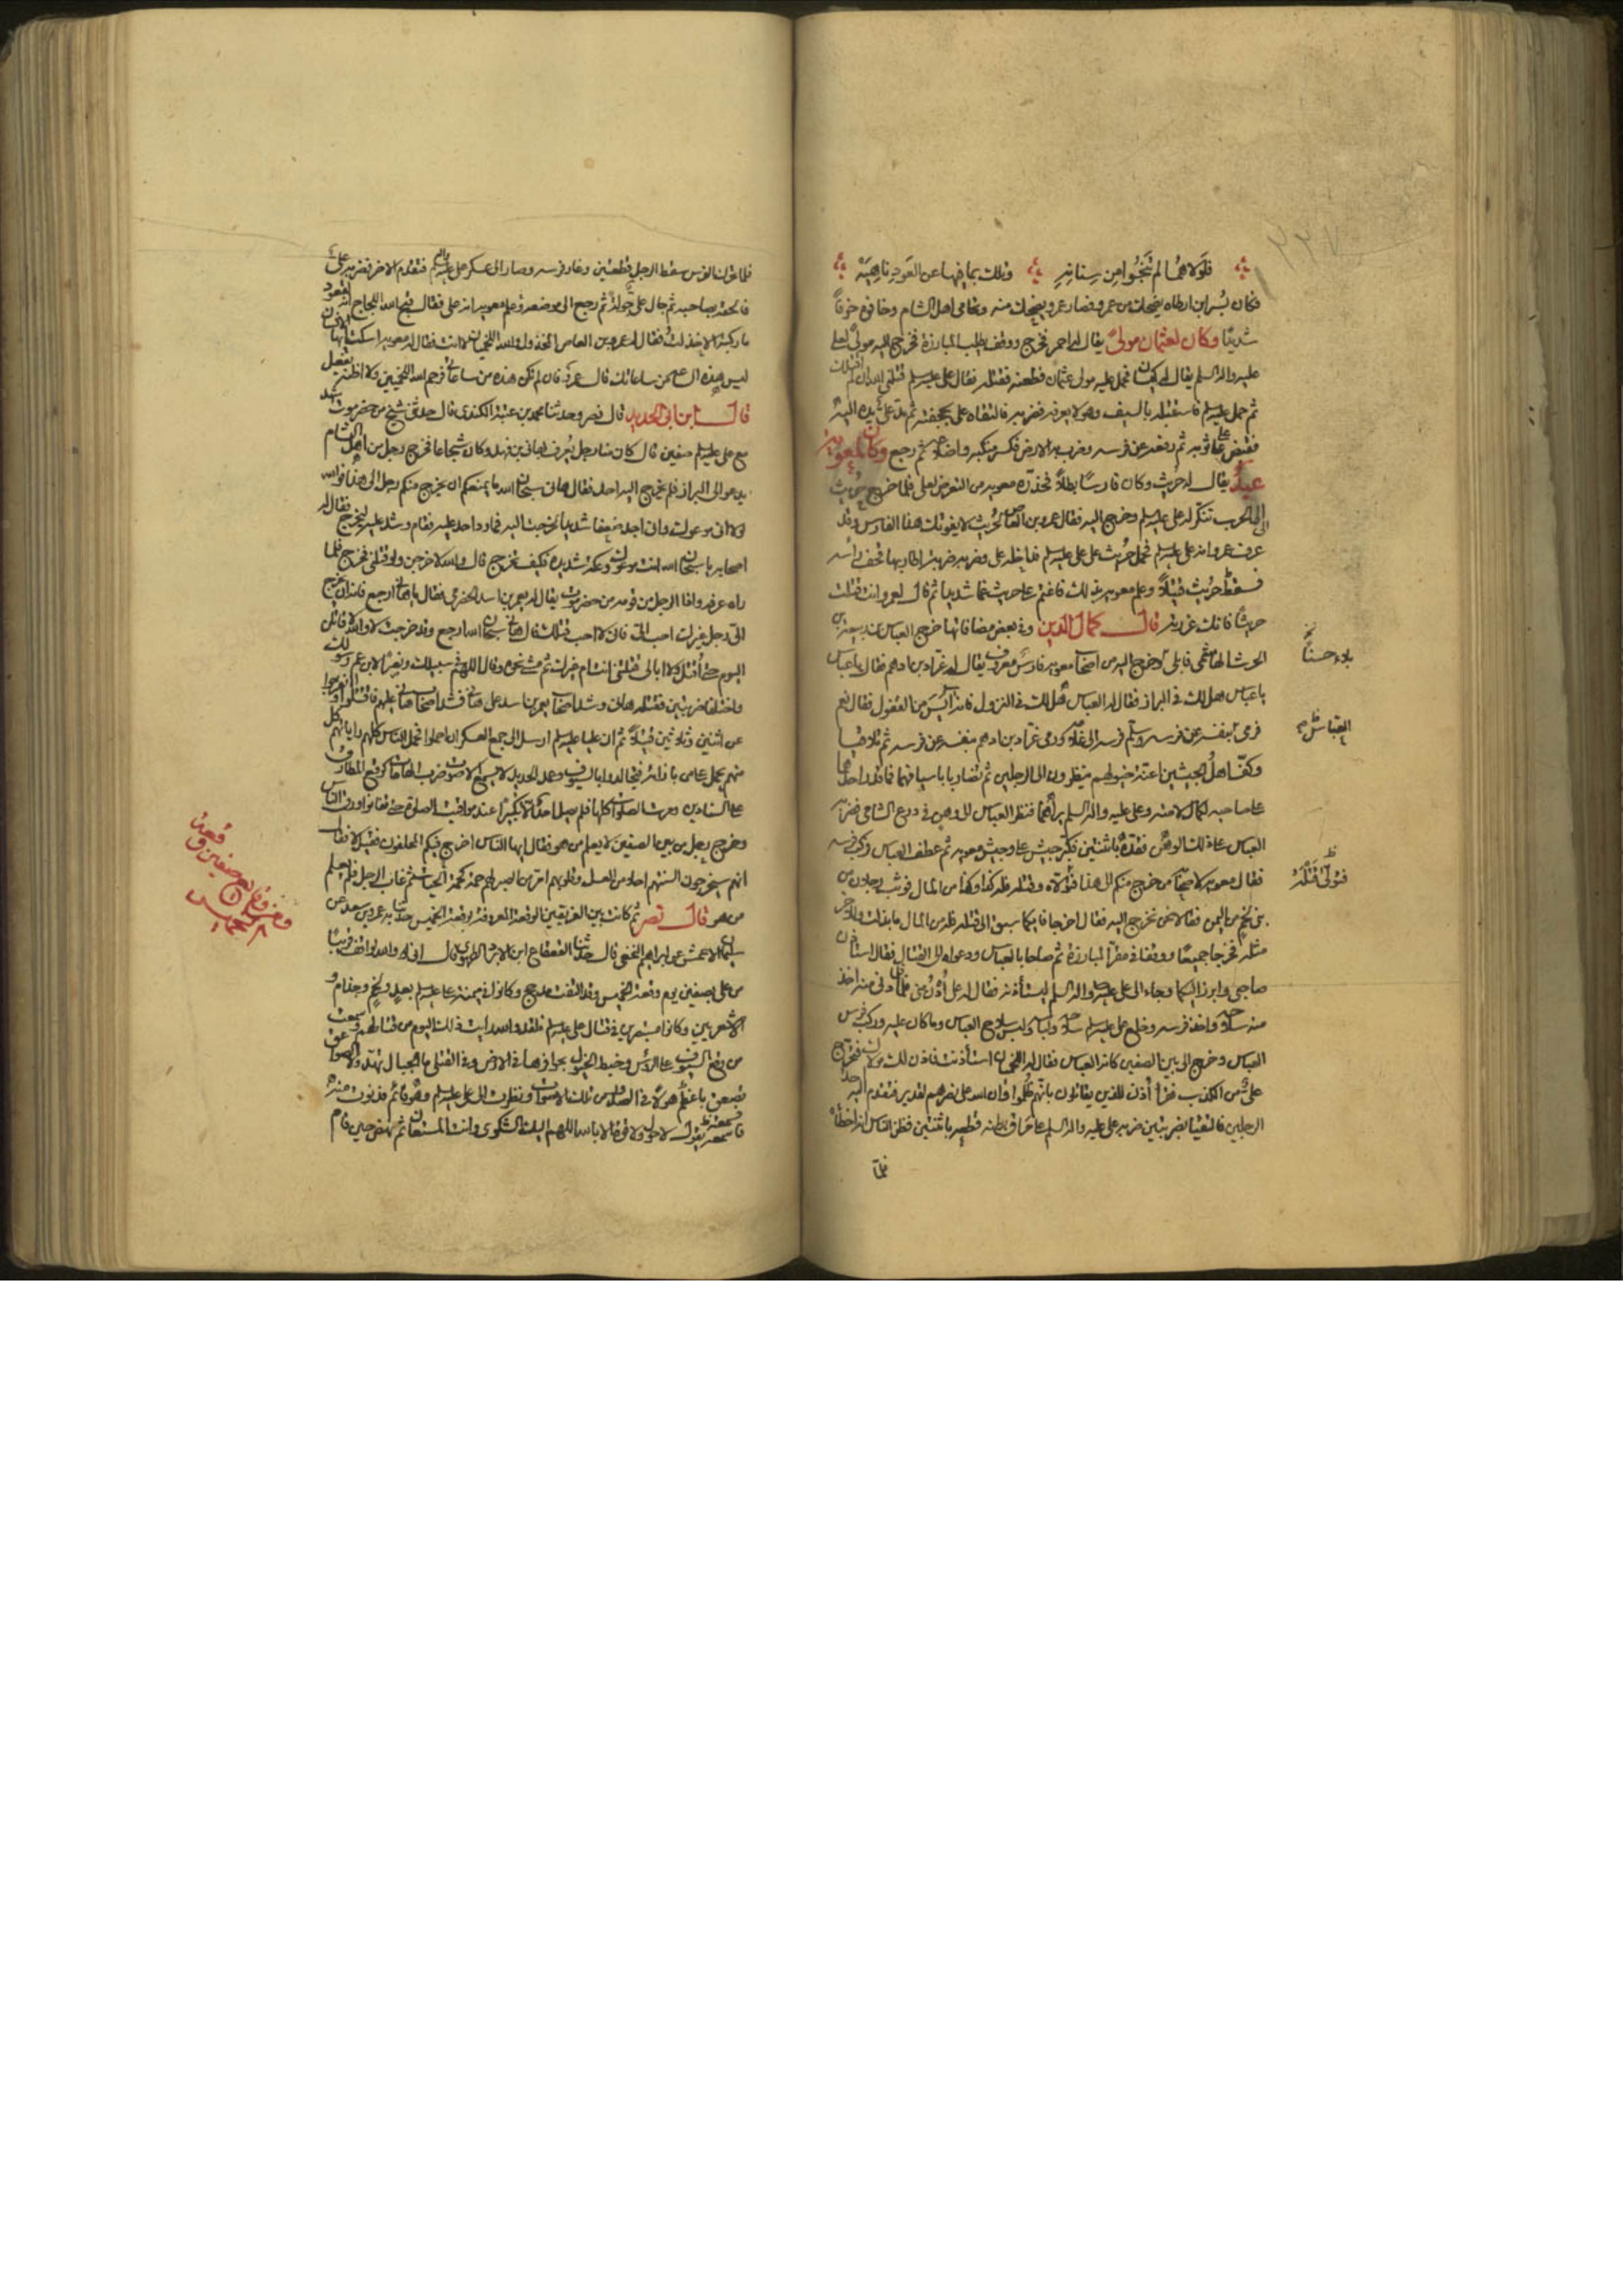 فلولا هما لم تنجوا من سنانه وتلك بما فيها عن العود ناهية
فكان بسر ابن ارطاه يضحك من عمرو فصار عمرو يضحك منه وتحامى اهل الشام وخافوه خوفاً
شديدًا وكان لعثمان مولىً يقال له احمر فخرج ووقف يطلب المبارزة فخرج اليه مولىً لعلى
عليه واله السلم يقال له كيسان فحمل عليه مولى عثمان فطعنه فقتله فقال على عليه السلم قتلنى الله ان لم اقتلك
ثم حمل عليه السلم فاستقبله بالسيف وهو لا يعرفه فضربه فالتقاه على بجحفته ثم مد على يده اليه
فقبض على ثوبه ثم رفعه عن فرسه وضرب به الارض فكسر منكبه واضلاعه ثم رجع وكان لمعويه
عبدٌ يقال له حُريث وكان فارسًا بطلاً فحذّره معويه من التعرض لعلى فلما خرج حُريث
الى الحرب تنكر له على عليه السلم وخرج اليه فقال عمرو بن العاص لحُريث لا يفوتك هذا الفارس وقد
عرف عمرو انه على عليه السلم فحمل حُريث على على عليه السلم فداخله على وضربه ضربه اطار بها قحف رأسه
فسقط حُريث قتيلاً وعلم معويه بذلك فاغتم على حريث غما شديدًا ثم قال لعمرو انت قتلت
حريثًا فانك غررته قال كمال الدين وفى بعض مصافاتها خرج العباس بن ربيعه بن
الحرث الهاشمى فابلى وخرج اليه من اصحاب معويه فارسٌ معروف يقال له عرّاد بن ادهم فقال يا عباس
بلاء حسنًا
يا عباس هل لك فى البراز فقال له العباس هل لك فى النزول فانه ايس من القفول فقال نعم
فرمى بنفسه عن فرسه وسلم فرسه الى غلامه ورمى عرّاد بن ادهم بنفسه عن فرسه ثم تلاقيا
العباس
وكفّ اهلُ الجيشين اعنّة خيولهم ينظرون الى الرجلين ثم تضاربا باسيافهما فما قدر احدهما
على صاحبه لكمال لامته وعلى عليه واله السلم يراهما فنظر العباس الى وهن فى درع الشامى فضربه
العباس على ذلك الوهن فقدّه باثنتين فكبّر جيش على وجيش معويه ثم عطف العباس وركب فرسه
فقال معويه لاصحابه من خرج منكم الى هذا وقتله فله كذا وكذا من المال فوثب رجلان من
فتولى قتله
بنى لخم من اليمن فقالا نحن نخرج اليه فقال اخرجا فايكما سبق الى قتله فله من المال ما بذلت وللاخر
مثله فخرجا جميعًا ووقفا فى مقرّ المبارزة ثم صاحا بالعباس ودعواه الى القتال فقال استاذن
صاحبى وابرز اليكما وجاء الى على عليه واله السلم ليستأذنه فقال له على اُدْنُ منى فلما دنى منه اخذ
منه سلاحه واخذ فرسه وخلع على عليه السلم سلاحه ولباسه ولبس سلاح العباس وما كان عليه وركب فرس
العباس وخرج الى بين الصفين كانه العباس فقال له اللخميان استأذنت فاذن لك مولاك فتحرّج
على من الكذب فقرأ أذن للذين يقاتلون بانّهم ظُلموا وان الله على نصرهم لقدير فتقدم اليه احد
الرجلين فالتقيا بضربتين ضربه على عليه واله السلم على مراق بطنه فقطعه باثنتين فظن الناس انه اخطأه
فلما
فلما تحرك الفرس سقط الرجل قطعتين وغار فرسه وصار الى عسكر على عليه السلم فتقدم الاخر فضربه على
فالحقه بصاحبه ثم جال على جولةً ثم رجع الى موضعه وعلم معويه انه على فقال قبح الله اللجاج انه لقعود
ما ركبته الا خذلتُ فقال له عمرو بن العاص المخذول والله اللخميان لا انت فقال له معويه اسكت ايها الانسان
ليس هذه الساعه من ساعاتك قال عمرو فان لم تكن هذه من ساعاتى فرحم الله اللخميين ولا اظنه يفعل
قال ابن ابى الحديد قال نصر وحدثنا محمد بن عتبة الكندى قال حدثنى شيخ من حضرموت شهد
مع على عليه السلم صفين قال كان منا رجل يُعرف بهانى بن نمر وكان شجاعا فخرج رجل من اهل الشام
يدعو الى البراز فلم يخرج اليه احد فقال هانى سبحان الله ما يمنعكم ان يخرج منكم رجل الى هذا فوالله
لولا انى موعوك وانى اجد ضعفا شديدا لخرجت اليه فما رد احد عليه فقام وشد عليه ليخرج فقال له
اصحابه يا سبحان الله انت موعوك وعكة شديده فكيف تخرج قال والله لاخرجن ولو قتلنى فخرج فلما
راه عرفه واذا الرجل من قومه من حضرموت يقال له يعمر بن اسد الحضرمى فقال يا هانى ارجع فانه ان يخرج
الىّ رجل غيرك احب الىّ فانى لا احب قتلك قال هانى سبحان الله ارجع وقد خرجت لا والله لاقاتلن
اليوم حتى اُقتل ولا ابالى قتلتنى انت ام غيرك ثم مشى نحوه وقال اللهم فى سبيلك ونصرًا لابن عم رسولك
واختلفا ضربتين فقتله هانى وشد اصحاب يعمر بن اسد على هانى فشد اصحاب هانى عليهم فاقتتلوا وانفرجوا
عن اثنين وثلاثين قتيلاً ثم ان عليا عليه السلم ارسل الى جميع العسكر ان احملوا فحمل الناس كلهم على راياتهم كل
منهم يحمل على من بازائه فتجالدوا بالسيوف وعمد الحديد لا يسمع الا صوت ضرب الهامات كوقع المطارق
على السنادين ومرت الصلوات كلها فلم يصل احد الا تكبيرًا عند مواقيت الصلوة حتى تفانوا ورق الناس
وخرج رجل من بين الصفين لا يعلم من هو فقال ايها الناس اخرج فيكم المحلقون فقيل لا فقال
انهم سيخرجون السنتهم احلا من العسل وقلوبهم امرّ من الصبر لهم حمة كحمة الحيات ثم غاب الرجل فلم يعلم
من هو قال نصر ثم كانت بين الفريقين الوقعة المعروفة بوقعة الخميس حدثنا به عمرو بن سعد عن
سليمان الاعمش عن ابراهيم النخعى قال حدثنا القعقاع ابن الابرد الطهوى قال انى والله لواقف قريبًا
من على بصفين يوم وقعة الخميس وقد التقت مذحج وكانوا فى ميمنة على عليه السلم بعك ولخم وجذام و
الاشعريين وكانوا مستبصرين فى قتال على عليه السلم فلقد والله رايت ذلك اليوم من قتالهم وسمعت
من وقع السيوف على الرؤس وخبط الخيول بحوافرها فى الارض وفى القتلى ما الجبال تهدّ ولا الصواعق
تصعق باعظم هولاً فى الصدور من تلك الاصوات ونظرت الى على عليه السلم وهو قائم فدنوت منه
فاسمعه يقول لا حول ولا قوة الا بالله اللهم اليك الشكوى وانت المستعان ثم نهض حين قام